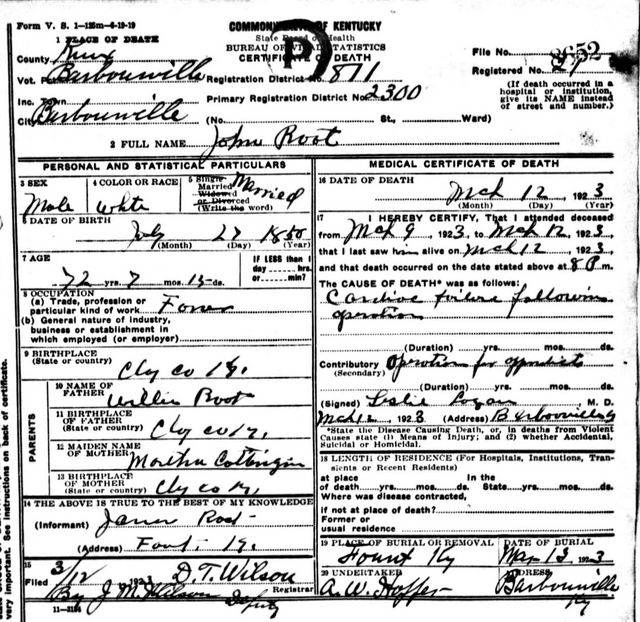 Form V. S. 1-125m-6-19-19
COMMONWEALTH OF KENTUCKY
State Board of Health
BUREAU OF VITAL STATISTICS
CERTIFICATE OF DEATH
1 PLACE OF DEATH
County Knox
File No. 8652
Vot. Barbourville Registration District No. 871
Registered No. 27
(If death occurred in a hospital or institution, give its NAME instead of street and number.)
Inc. Town Primary Registration District No. 2300
City Barbourville (No. St., Ward)
2 FULL NAME John Root
PERSONAL AND STATISTICAL PARTICULARS
3 SEX Male
4 COLOR OR RACE White
5 Single Married Widowed or Divorced (Write the word) Married
6 DATE OF BIRTH
July 27 1850
(Month) (Day) (Year)
7 AGE
72 yrs. 7 mos. 15 ds.
IF LESS than 1 day ---- hrs. or ---- min?
8 OCCUPATION
(a) Trade, profession or particular kind of work
(b) General nature of industry, business or establishment in which employed (or employer)
9 BIRTHPLACE
(State or country) Clay co Ky.
PARENTS
10 NAME OF FATHER Willis Root
11 BIRTHPLACE OF FATHER
(State or country) Clay co Ky.
12 MAIDEN NAME OF MOTHER Martha
13 BIRTHPLACE OF MOTHER
(State or country) Clay co Ky.
14 THE ABOVE IS TRUE TO THE BEST OF MY KNOWLEDGE
(Informant) Root
(Address) Ky.
15
Filed 3/12 1923 D. T. Wilson
Registrar
By J. M. Wilson Deputy
11-3184
MEDICAL CERTIFICATE OF DEATH
16 DATE OF DEATH
Mch 12, 1923
(Month) (Day) (Year)
17 I HEREBY CERTIFY, That I attended deceased
from Mch 9, 1923, to Mch 12, 1923,
that I last saw him alive on Mch 12, 1923,
and that death occurred on the date stated above at 8 P.m.
The CAUSE OF DEATH* was as follows:
Cardiac failure following
operation
(Duration) yrs. mos. ds.
Contributory Operation for
(Secondary)
(Duration) yrs. mos. ds.
(Signed) Leslie Logan M. D.
Mch 12, 1923 (Address) Barbourville Ky
*State the Disease Causing Death, or, in deaths from Violent Causes state (1) Means of Injury; and (2) whether Accidental, Suicidal or Homicidal.
18 LENGTH OF RESIDENCE (For Hospitals, Institutions, Transients or Recent Residents)
at place In the
of death yrs. mos. ds. State yrs. mos. ds.
Where was disease contracted,
if not at place of death?
Former or
usual residence
19 PLACE OF BURIAL OR REMOVAL DATE OF BURIAL
Fount Ky Mar 13 1923
20 UNDERTAKER ADDRESS
A. W. Hopper Barbourville
Ky
very important. See instructions on back of certificate.